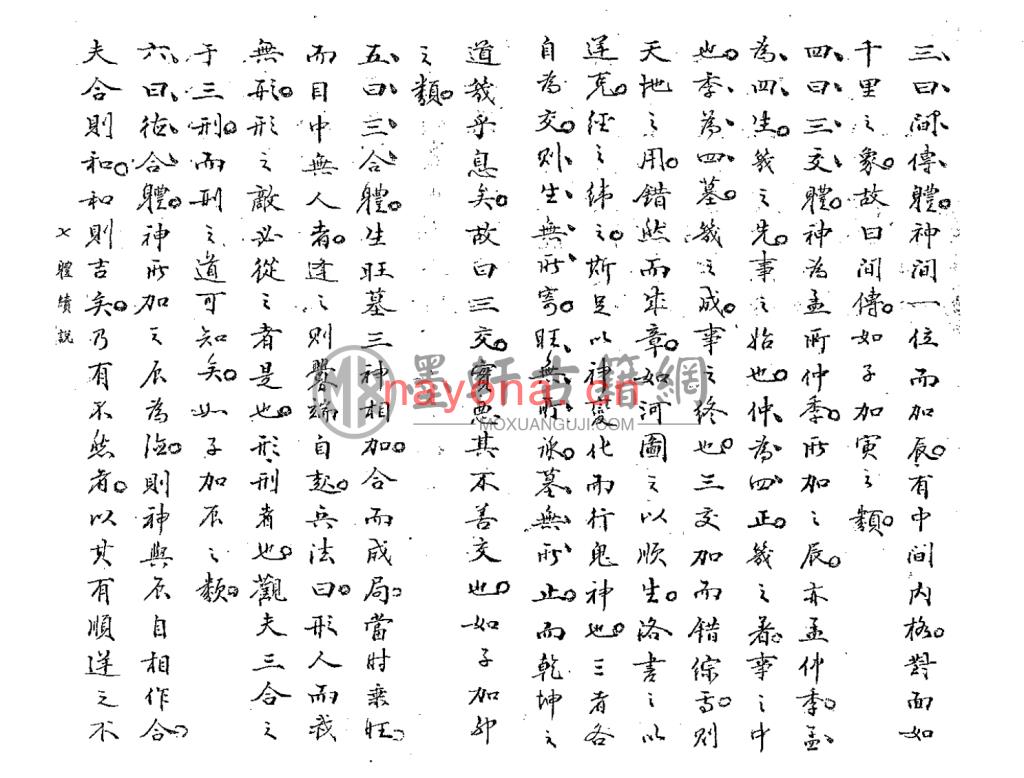 三、曰、間、傳、體。神間一位而加辰。有中間內格。對面如
千里之象。故曰間傳。如子加寅之類。
四、曰、三、交、體。神為孟所仲季。所加之辰。亦孟仲季。孟、
為、四、生。幾之先。事之始也。仲、為、四、正。幾之著。事之中
也。季、為、四、墓。幾之成。事之終也。三交加而錯綜焉。則
天地之用。錯然而成章。如河圖之以順生。洛書之以
逆克。經之緯之。斯足以神變化而行鬼神也。三者各
自為交。則生、無、所、寄。旺、無、所、承。墓、無、所、止。而乾坤之
道幾乎息矣。故曰三交。實惡其不善交也。如子加卯
之類。
五、曰、三、合、體。生旺墓三神相加。合而成局。當時乘旺。
而目中無人者。逢之則釁端自起。兵法曰。形人而我
無形。形之敵必從之者是也。形、刑者也。觀夫三合之
于三刑。而刑之道可知矣。如子加辰之類。
六、曰、德、合、體。神所加之辰為德。則神與辰自相作合。
夫合則和。和則吉矣。乃有不然者。以其有順逆之不
體續說
墨軒古籍網
MOXUANGUJI.COM
nayona.cn